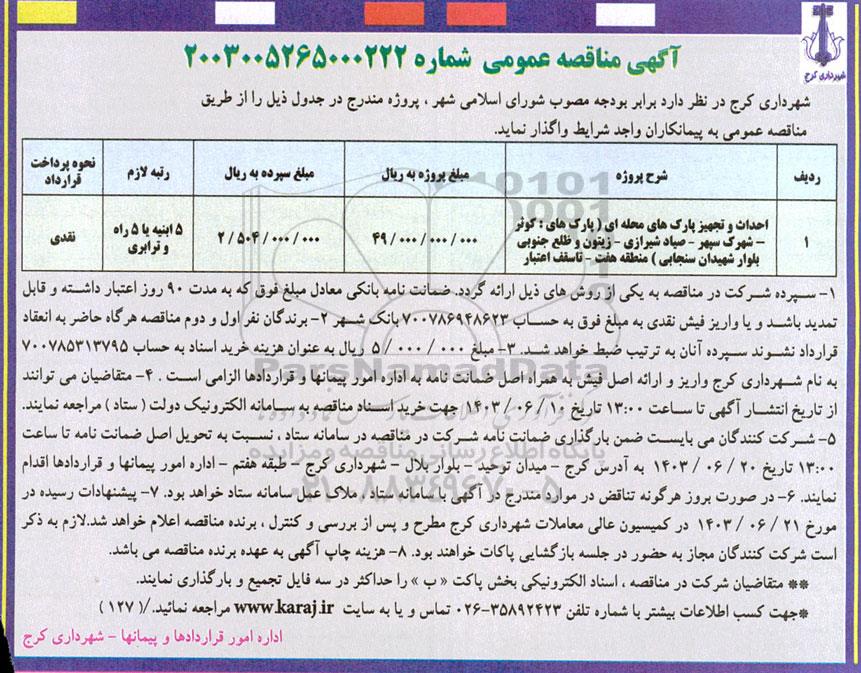 شهرداری کرج
آگهی مناقصه عمومی شماره ۲۰۰۳۰۰۵۲۶۵۰۰۰۲۲۲
شهرداری کرج در نظر دارد برابر بودجه مصوب شورای اسلامی شهر ، پروژه مندرج در جدول ذیل را از طریق
مناقصه عمومی به پیمانکاران واجد شرایط واگذار نماید.
ردیف شرح پروژه مبلغ پروژه به ریال مبلغ سپرده به ریال رتبه لازم نحوه پرداخت قرارداد
۱ احداث و تجهیز پارک های محله ای ( پارک های : کوثر
– شهرک سپهر – صیاد شیرازی – زیتون و ظلع جنوبی
بلوار شهیدان سنجابی ) منطقه هفت – تاسقف اعتبار
۴۹/۰۰۰/۰۰۰/۰۰۰
۲/۵۰۴/۰۰۰/۰۰۰
۵ ابنیه یا ۵ راه
و ترابری
نقدی
۱– سپرده شرکت در مناقصه به یکی از روش های ذیل ارائه گردد. ضمانت نامه بانکی معادل مبلغ فوق که به مدت ۹۰ روز اعتبار داشته و قابل
تمدید باشد و یا واریز فیش نقدی به مبلغ فوق به حساب ۷۰۰۷۸۶۹۴۸۶۲۳ بانک شهر ۲– برندگان نفر اول و دوم مناقصه هرگاه حاضر به انعقاد
قرارداد نشوند سپرده آنان به ترتیب ضبط خواهد شد. ۳– مبلغ ۰۰۰ / ۰۰۰ / ۵ ریال به عنوان هزینه خرید اسناد به حساب ۷۰۰۷۸۵۳۱۳۷۹۵
به نام شهرداری کرج واریز و ارائه اصل فیش به همراه اصل ضمانت نامه به اداره امور پیمانها و قراردادها الزامی است . ۴– متقاضیان می توانند
از تاریخ انتشار آگهی تا ساعت ۱۳:۰۰ تاریخ ۱۰ / ۰۶ / ۱۴۰۳ جهت خرید اسناد مناقصه به سامانه الکترونیک دولت ( ستاد ) مراجعه نمایند.
۵– شرکت کنندگان می بایست ضمن بارگذاری ضمانت نامه شرکت در مناقصه در سامانه ستاد ، نسبت به تحویل اصل ضمانت نامه تا ساعت
۱۳:۰۰ تاریخ ۲۰ / ۰۶ / ۱۴۰۳ به آدرس کرج – میدان توحید – بلوار بلال – شهرداری کرج – طبقه هفتم – اداره امور پیمانها و قراردادها اقدام
نمایند. ۶– در صورت بروز هرگونه تناقض در موارد مندرج در آگهی با سامانه ستاد ، ملاک عمل سامانه ستاد خواهد بود. ۷– پیشنهادات رسیده در
مورخ ۲۱ / ۰۶ / ۱۴۰۳ در کمیسیون عالی معاملات شهرداری کرج مطرح و پس از بررسی و کنترل ، برنده مناقصه اعلام خواهد شد.لازم به ذکر
است شرکت کنندگان مجاز به حضور در جلسه بازگشایی پاکات خواهند بود. ۸– هزینه چاپ آگهی به عهده برنده مناقصه می باشد.
** متقاضیان شرکت در مناقصه ، اسناد الکترونیکی بخش پاکت « ب » را حداکثر در سه فایل تجمیع و بارگذاری نمایند.
*جهت کسب اطلاعات بیشتر با شماره تلفن ۳۵۸۹۲۴۲۳–۰۲۶ تماس و یا به سایت www.karaj.ir مراجعه نمائید./( ۱۲۷ )
اداره امور قراردادها و پیمانها – شهرداری کرج
ParsNamadData
پایگاه اطلاع رسانی مناقصه و مزایده
۰۲۱–۸۸۳۴۹۶۷۰–۵